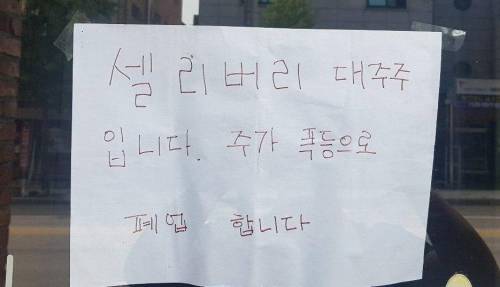 셀리버리 대주주
입니다. 주가 폭등으로
폐업 합니다